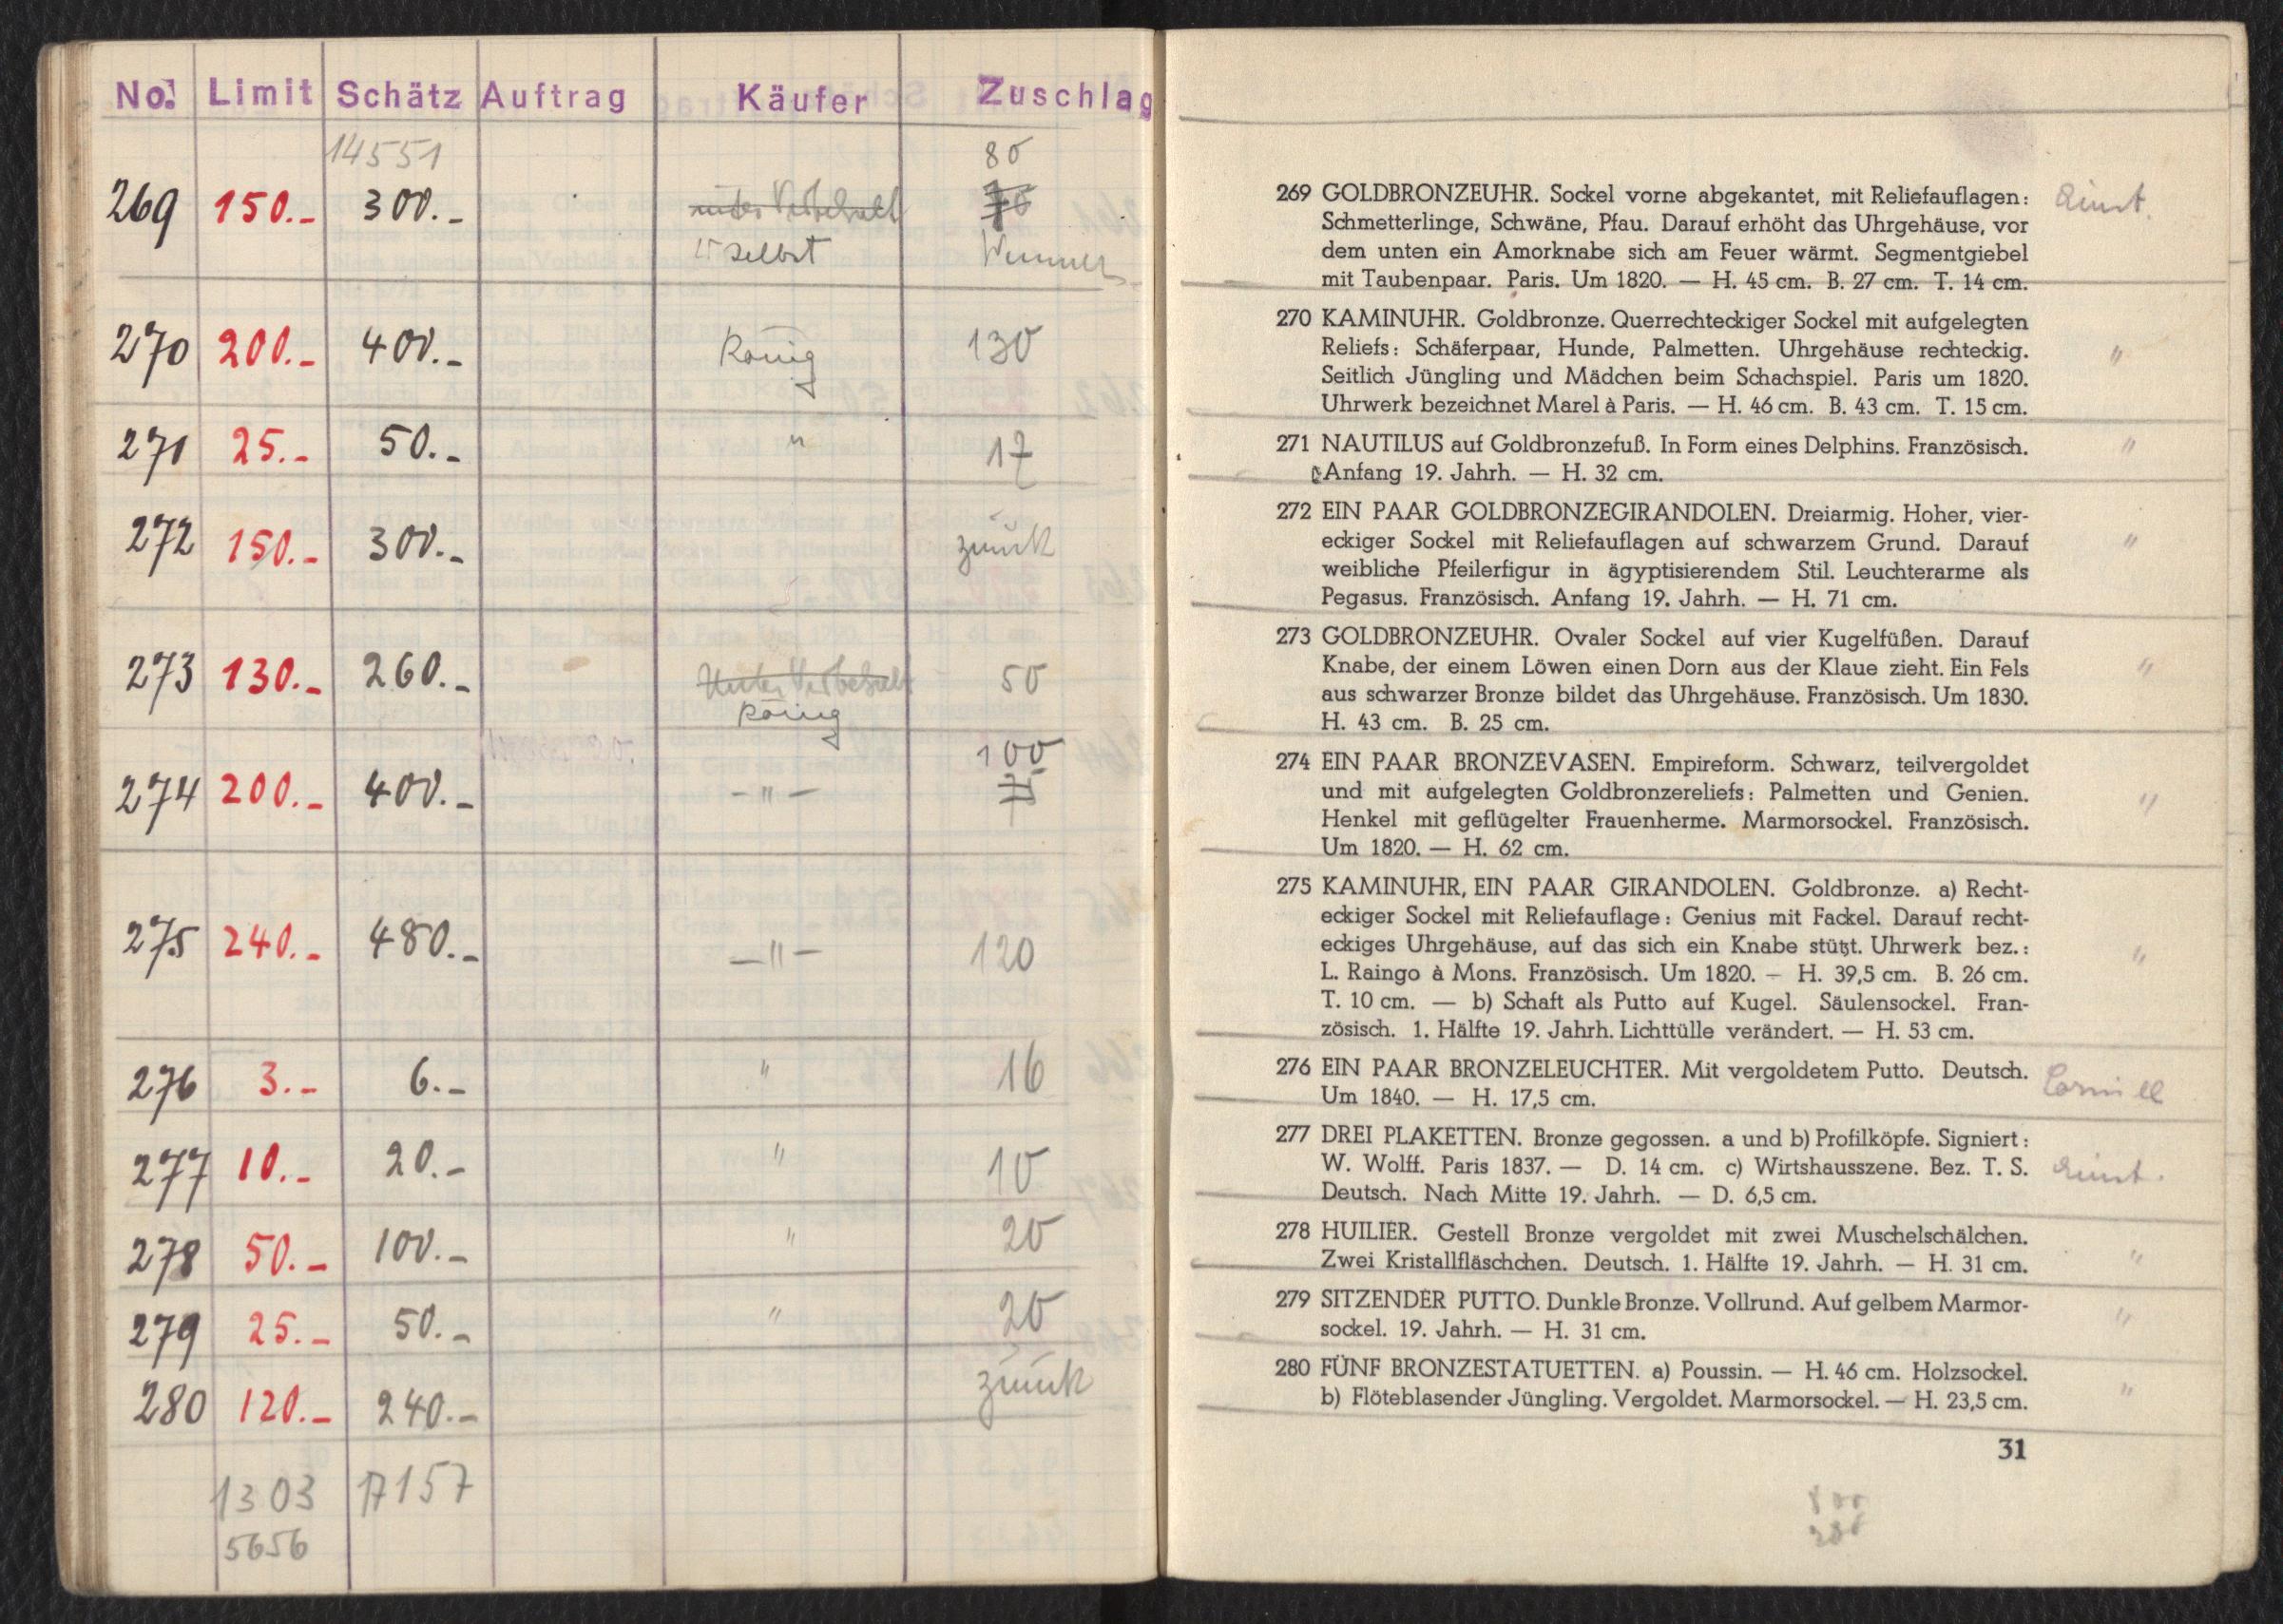 No. Limit Schätz Auftrag Käufer Zuschlag
14551 80
269 150.- 300.- unter Vorbehalt
selbst
270 200.- 400.- König 130
271 25.- 50.- " 17
272 150.- 300.- zurück
273 130.- 260.- Unter Vorbehalt 50
König
100
274 200.- 400.- -"- 75
275 240.- 480.- -"- 120
276 3.- 6.- " 16
277 10.- 20.- " 10
278 50.- 100.- " 20
279 25.- 50.- " 20
280 120.- 240.- zurück
1303 17157
5656
269 GOLDBRONZEUHR. Sockel vorne abgekantet, mit Reliefauflagen:
Schmetterlinge, Schwäne, Pfau. Darauf erhöht das Uhrgehäuse, vor
dem unten ein Amorknabe sich am Feuer wärmt. Segmentgiebel
mit Taubenpaar. Paris. Um 1820. — H. 45 cm. B. 27 cm. T. 14 cm.
270 KAMINUHR. Goldbronze. Querrechteckiger Sockel mit aufgelegten
Reliefs: Schäferpaar, Hunde, Palmetten. Uhrgehäuse rechteckig. "
Seitlich Jüngling und Mädchen beim Schachspiel. Paris um 1820.
Uhrwerk bezeichnet Marel à Paris. — H. 46 cm. B. 43 cm. T. 15 cm.
271 NAUTILUS auf Goldbronzefuß. In Form eines Delphins. Französisch. "
Anfang 19. Jahrh. — H. 32 cm.
272 EIN PAAR GOLDBRONZEGIRANDOLEN. Dreiarmig. Hoher, vier-
eckiger Sockel mit Reliefauflagen auf schwarzem Grund. Darauf "
weibliche Pfeilerfigur in ägyptisierendem Stil. Leuchterarme als
Pegasus. Französisch. Anfang 19. Jahrh. — H. 71 cm.
273 GOLDBRONZEUHR. Ovaler Sockel auf vier Kugelfüßen. Darauf
Knabe, der einem Löwen einen Dorn aus der Klaue zieht. Ein Fels "
aus schwarzer Bronze bildet das Uhrgehäuse. Französisch. Um 1830.
H. 43 cm. B. 25 cm.
274 EIN PAAR BRONZEVASEN. Empireform. Schwarz, teilvergoldet
und mit aufgelegten Goldbronzereliefs: Palmetten und Genien. "
Henkel mit geflügelter Frauenherme. Marmorsockel. Französisch.
Um 1820. — H. 62 cm.
275 KAMINUHR, EIN PAAR GIRANDOLEN. Goldbronze. a) Recht-
eckiger Sockel mit Reliefauflage: Genius mit Fackel. Darauf recht-
eckiges Uhrgehäuse, auf das sich ein Knabe stützt. Uhrwerk bez.: "
L. Raingo à Mons. Französisch. Um 1820. — H. 39,5 cm. B. 26 cm.
T. 10 cm. — b) Schaft als Putto auf Kugel. Säulensockel. Fran-
zösisch. 1. Hälfte 19. Jahrh. Lichttülle verändert. — H. 53 cm.
276 EIN PAAR BRONZELEUCHTER. Mit vergoldetem Putto. Deutsch.
Um 1840. — H. 17,5 cm. Cornill
277 DREI PLAKETTEN. Bronze gegossen. a und b) Profilköpfe. Signiert:
W. Wolff. Paris 1837. — D. 14 cm. c) Wirtshausszene. Bez. T. S.
Deutsch. Nach Mitte 19. Jahrh. — D. 6,5 cm.
278 HUILIER. Gestell Bronze vergoldet mit zwei Muschelschälchen.
Zwei Kristallfläschchen. Deutsch. 1. Hälfte 19. Jahrh. — H. 31 cm. "
279 SITZENDER PUTTO. Dunkle Bronze. Vollrund. Auf gelbem Marmor- "
sockel. 19. Jahrh. — H. 31 cm.
280 FÜNF BRONZESTATUETTEN. a) Poussin. — H. 46 cm. Holzsockel.
b) Flöteblasender Jüngling. Vergoldet. Marmorsockel. — H. 23,5 cm. "
31